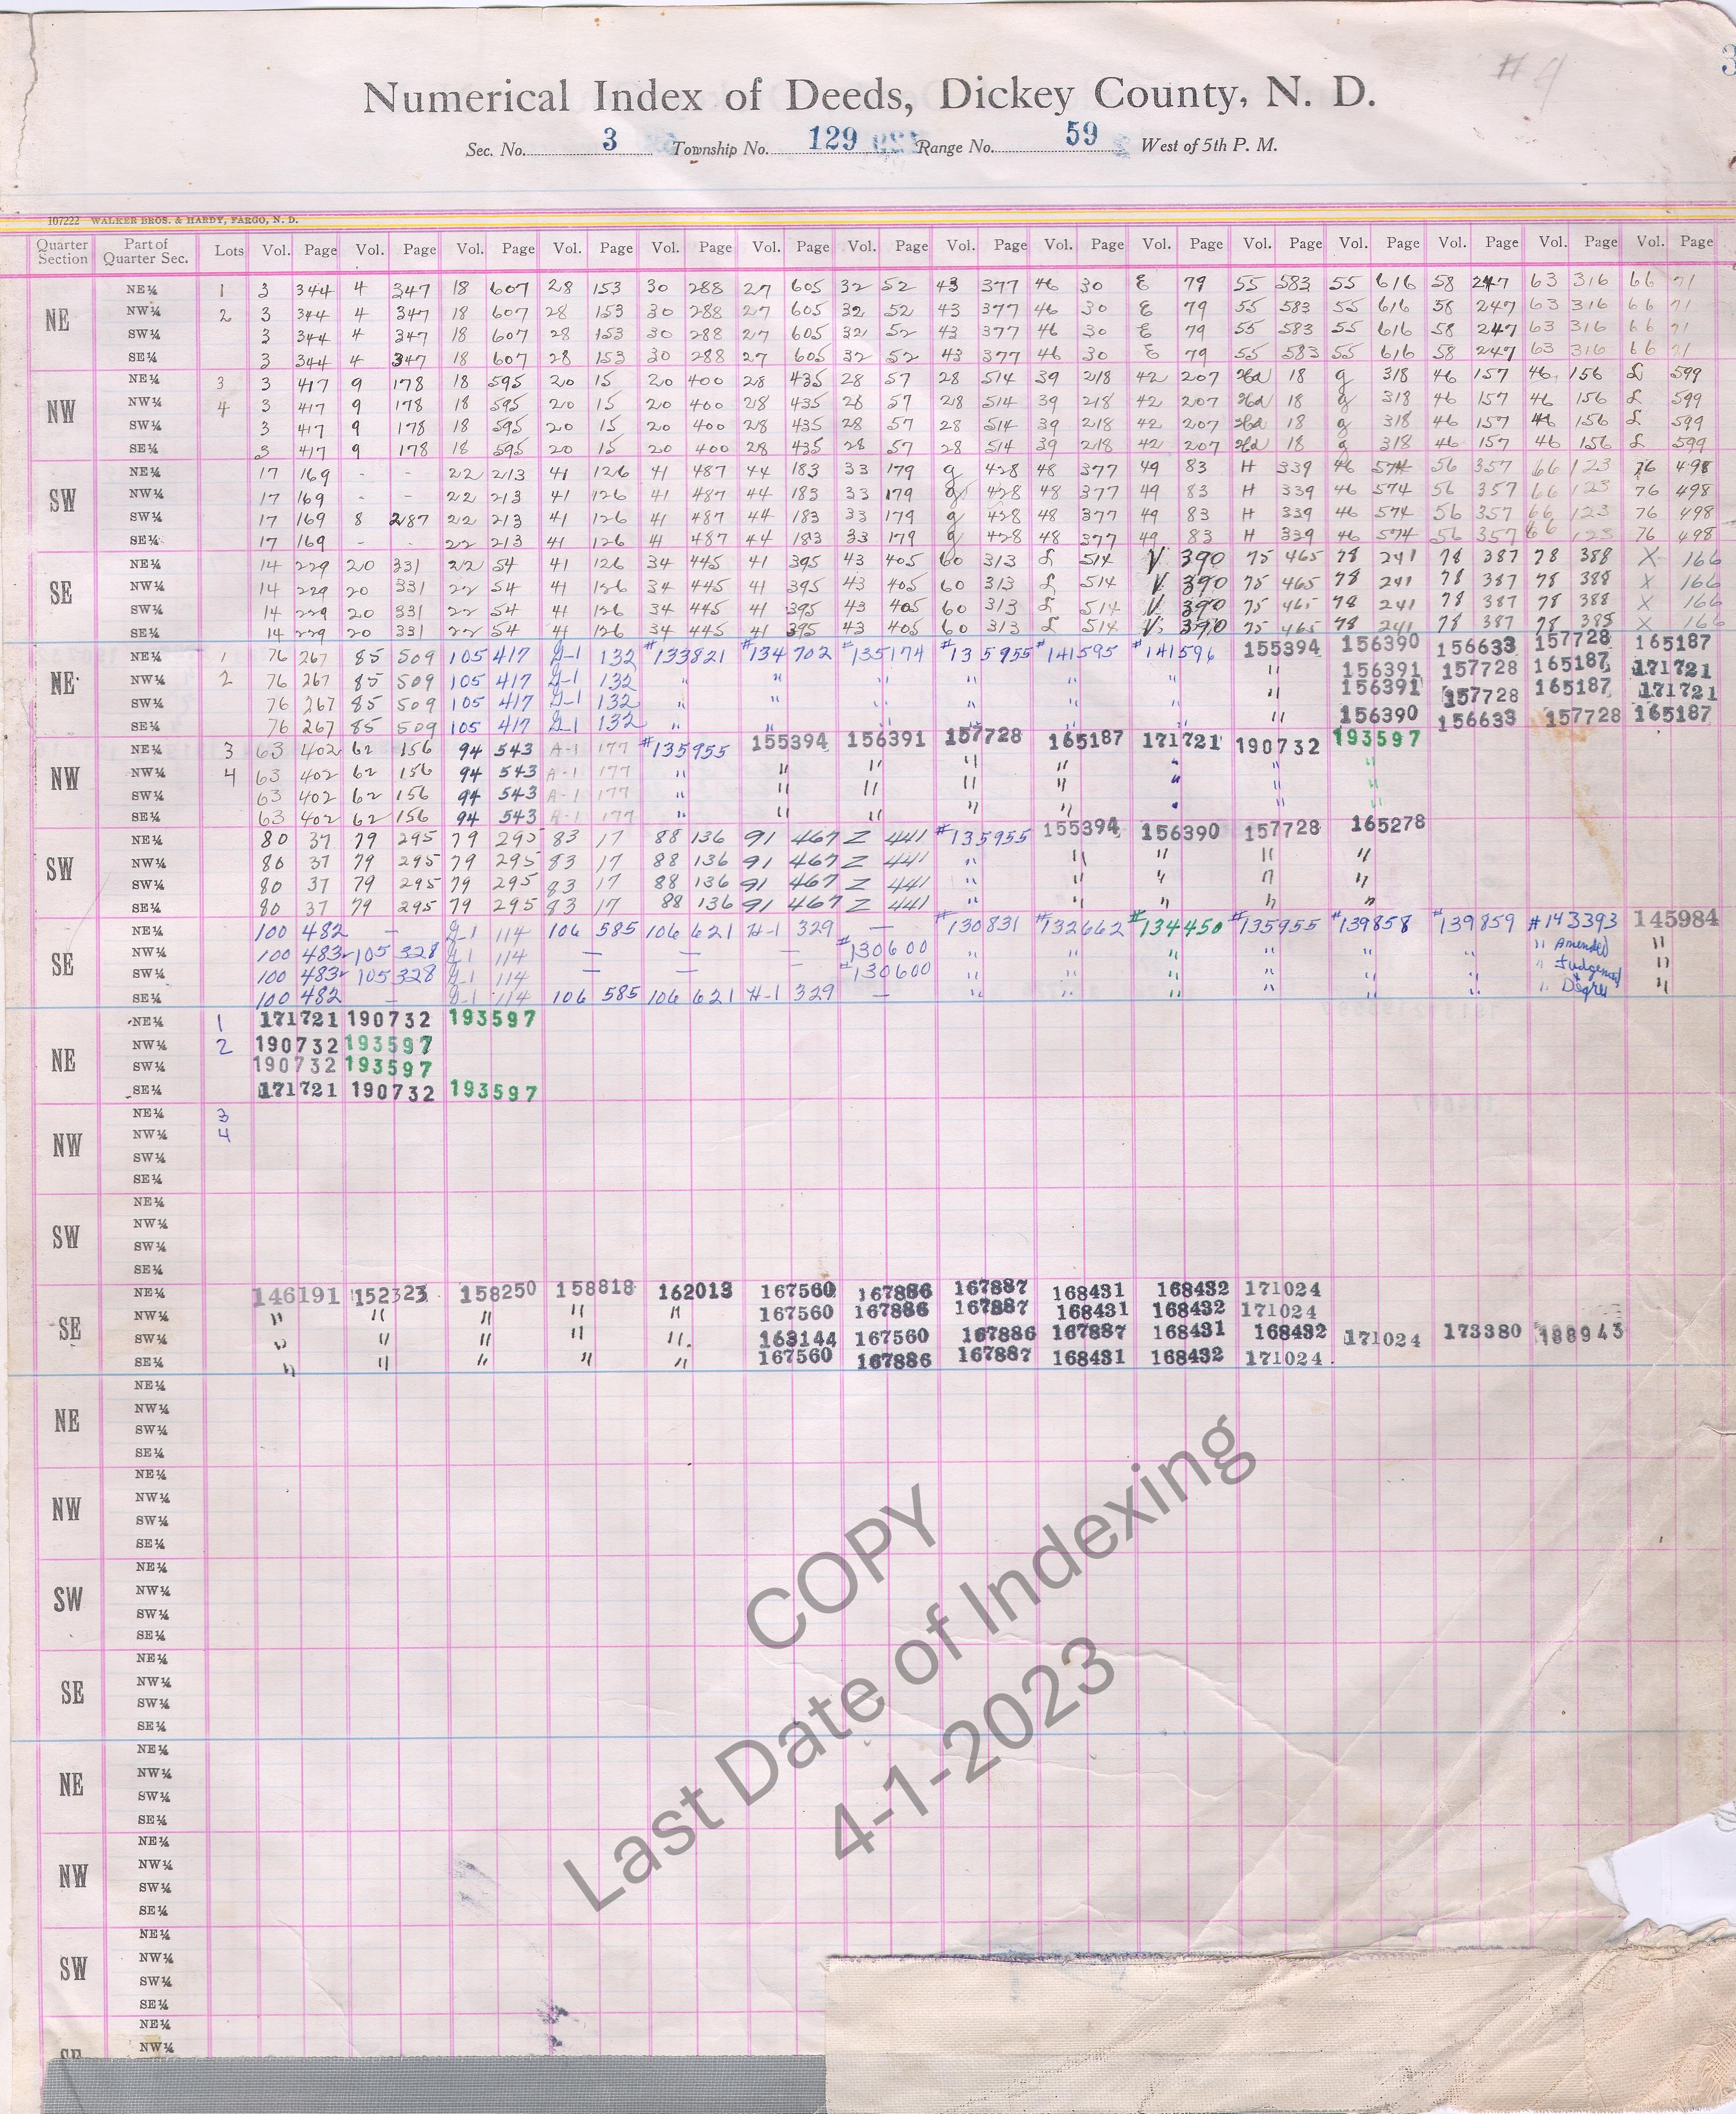 # 4
3
Numerical Index of Deeds, Dickey County, N. D.
Sec. No. 3 Township No. 129 Range No. 59 West of 5th P. M.
107222 WALKER BROS. & HARDY, FARGO, N. D.
Quarter Section Part of Quarter Sec. Lots Vol. Page Vol. Page Vol. Page Vol. Page Vol. Page Vol. Page Vol. Page Vol. Page Vol. Page Vol. Page Vol. Page Vol. Page Vol. Page Vol. Page Vol. Page
NE
NE¼ 1 3 344 4 347 18 607 28 153 30 288 27 605 32 52 43 377 46 30 E 79 55 583 55 616 58 247 63 316 66 71
NW¼ 2 3 344 4 347 18 607 28 153 30 288 27 605 32 52 43 377 46 30 E 79 55 583 55 616 58 247 63 316 66 71
SW¼ 3 344 4 347 18 607 28 153 30 288 27 605 32 52 43 377 46 30 E 79 55 583 55 616 58 247 63 316 66 71
SE¼ 3 344 4 347 18 607 28 153 30 288 27 605 32 52 43 377 46 30 E 79 55 583 55 616 58 247 63 316 66 71
NW
NE¼ 3 3 417 9 178 18 595 20 15 20 400 28 435 28 57 28 514 39 218 42 207 18 g 318 46 157 46 156 L 599
NW¼ 4 3 417 9 178 18 595 20 15 20 400 28 435 28 57 28 514 39 218 42 207 18 g 318 46 157 46 156 L 599
SW¼ 3 417 9 178 18 595 20 15 20 400 28 435 28 57 28 514 39 218 42 207 18 g 318 46 157 46 156 L 599
SE¼ 3 417 9 178 18 595 20 15 20 400 28 435 28 57 28 514 39 218 42 207 18 g 318 46 157 46 156 L 599
SW
NE¼ 17 169 - - 22 213 41 126 41 487 44 183 33 179 g 428 48 377 49 83 H 339 46 574 56 357 66 123 76 498
NW¼ 17 169 - - 22 213 41 126 41 487 44 183 33 179 g 428 48 377 49 83 H 339 46 574 56 357 66 123 76 498
SW¼ 17 169 8 287 22 213 41 126 41 487 44 183 33 179 g 428 48 377 49 83 H 339 46 574 56 357 66 123 76 498
SE¼ 17 169 - - 22 213 41 126 41 487 44 183 33 179 g 428 48 377 49 83 H 339 46 574 56 357 66 123 76 498
SE
NE¼ 14 229 20 331 22 54 41 126 34 445 41 395 43 405 60 313 L 514 V 390 75 465 78 241 78 387 78 388 X 166
NW¼ 14 229 20 331 22 54 41 126 34 445 41 395 43 405 60 313 L 514 V 390 75 465 78 241 78 387 78 388 X 166
SW¼ 14 229 20 331 22 54 41 126 34 445 41 395 43 405 60 313 L 514 V 390 75 465 78 241 78 387 78 388 X 166
SE¼ 14 229 20 331 22 54 41 126 34 445 41 395 43 405 60 313 L 514 V 390 75 465 78 241 78 387 78 388 X 166
NE
NE¼ 1 76 267 85 509 105 417 G-1 132 #133821 #134702 #135174 #135955 #141595 #141596 155394 156390 156633 157728 165187
NW¼ 2 76 267 85 509 105 417 G-1 132 " " " " " " " 156391 157728 165187 171721
SW¼ 76 267 85 509 105 417 G-1 132 " " " " " " " 156391 157728 165187 171721
SE¼ 76 267 85 509 105 417 G-1 132 " " " " " " " 156390 156633 157728 165187
NW
NE¼ 3 63 402 62 156 94 543 A-1 177 #135955 155394 156391 157728 165187 171721 190732 193597
NW¼ 4 63 402 62 156 94 543 A-1 177 " " " " " " " "
SW¼ 63 402 62 156 94 543 A-1 177 " " " " " " " "
SE¼ 63 402 62 156 94 543 A-1 177 " " " " " " " "
SW
NE¼ 80 37 79 295 79 295 83 17 88 136 91 467 Z 441 #135955 155394 156390 157728 165278
NW¼ 80 37 79 295 79 295 83 17 88 136 91 467 Z 441 " " " " "
SW¼ 80 37 79 295 79 295 83 17 88 136 91 467 Z 441 " " " " "
SE¼ 80 37 79 295 79 295 83 17 88 136 91 467 Z 441 " " " " "
SE
NE¼ 100 482 - G-1 114 106 585 106 621 H-1 329 - #130831 #132662 #134450 #135955 #139858 #139859 #143393 145984
NW¼ 100 483 105 328 G-1 114 - - - #130600 " " " " " " " Amended "
SW¼ 100 483 105 328 G-1 114 - - #130600 " " " " " " " Judgement "
SE¼ 100 482 - G-1 114 106 585 106 621 H-1 329 - " " " " " " " & Degree "
NE
NE¼ 1 171721 190732 193597
NW¼ 2 190732 193597
SW¼ 190732 193597
SE¼ 171721 190732 193597
NW
NE¼ 3
NW¼ 4
SW¼
SE¼
SW
NE¼
NW¼
SW¼
SE¼
SE
NE¼ 146191 152323 158250 158818 162013 167560 167886 167887 168431 168432 171024
NW¼ " " " " " 167560 167886 167887 168431 168432 171024
SW¼ " " " " " 163144 167560 167886 167887 168431 168432 171024 173380 188943
SE¼ " " " " " 167560 167886 167887 168431 168432 171024
NE
NE¼
NW¼
SW¼
SE¼
NW
NE¼
NW¼
SW¼
SE¼
SW
NE¼
NW¼
SW¼
SE¼
SE
NE¼
NW¼
SW¼
SE¼
NE
NE¼
NW¼
SW¼
SE¼
NW
NE¼
NW¼
SW¼
SE¼
SW
NE¼
NW¼
SW¼
SE¼
SE
NE¼
NW¼
COPY
Last Date of Indexing
4-1-2023